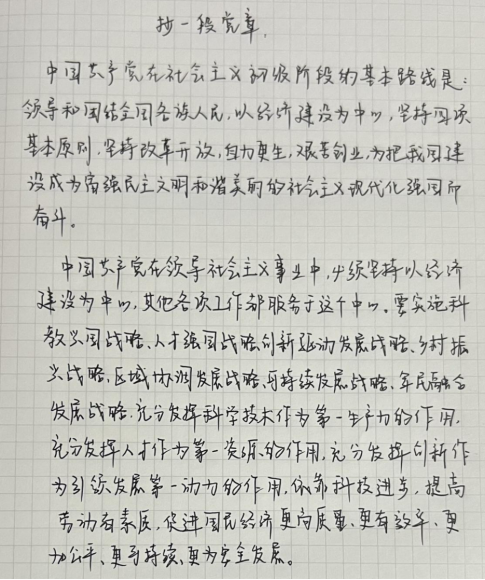 抄一段党章,
中国共产党在社会主义初级阶段的基本路线是:
领导和团结全国各族人民,以经济建设为中心,坚持四项
基本原则,坚持改革开放,自力更生,艰苦创业,为把我国建
设成为富强民主文明和谐美丽的社会主义现代化强国而
奋斗。
中国共产党在领导社会主义事业中,必须坚持以经济
建设为中心,其他各项工作都服务于这个中心。要实施科
教兴国战略、人才强国战略、创新驱动发展战略、乡村振
兴战略、区域协调发展战略、可持续发展战略、军民融合
发展战略,充分发挥科学技术作为第一生产力的作用,
充分发挥人才作为第一资源的作用,充分发挥创新作
为引领发展第一动力的作用,依靠科技进步,提高
劳动者素质,促进国民经济更高质量、更有效率、更
加公平、更可持续、更为安全发展。